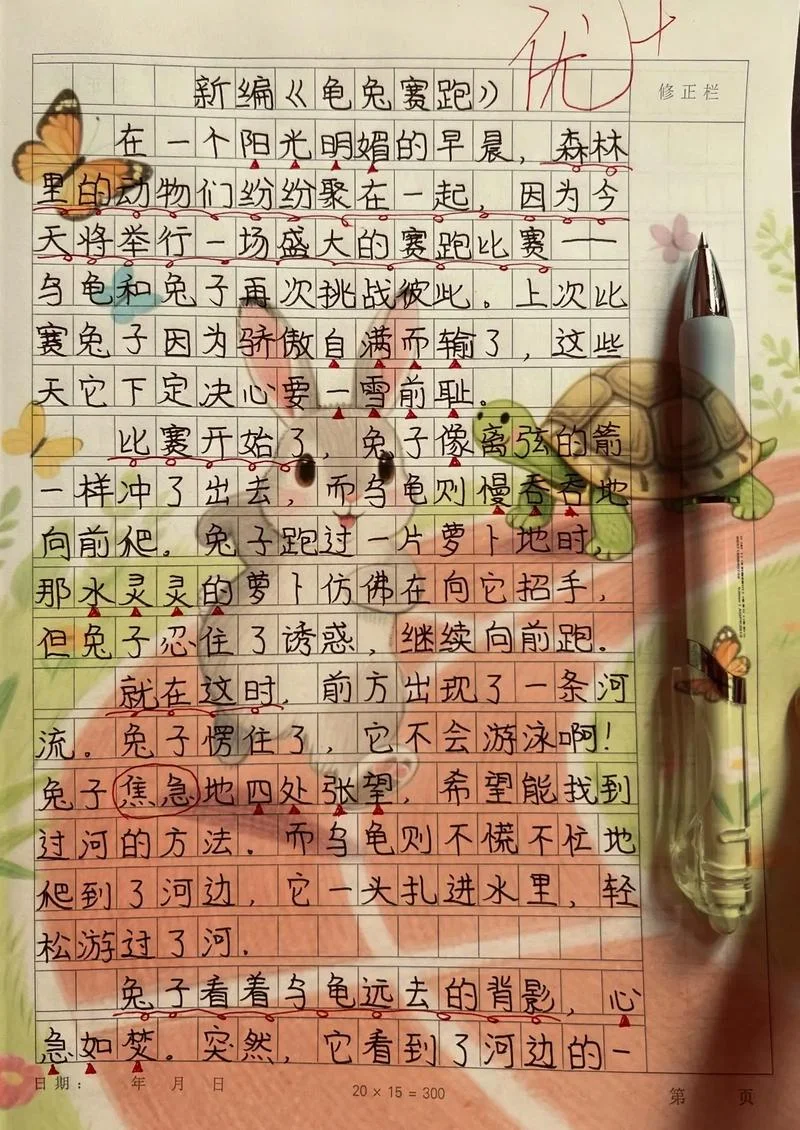 优+
新编《龟兔赛跑》
修正栏
在一个阳光明媚的早晨，森林
里的动物们纷纷聚在一起，因为今
天将举行一场盛大的赛跑比赛——
乌龟和兔子再次挑战彼此。上次比
赛兔子因为骄傲自满而输了，这些
天它下定决心要一雪前耻。
比赛开始了，兔子像离弦的箭
一样冲了出去，而乌龟则慢吞吞地
向前爬。兔子跑过一片萝卜地时，
那水灵灵的萝卜仿佛在向它招手，
但兔子忍住了诱惑，继续向前跑。
就在这时，前方出现了一条河
流。兔子愣住了，它不会游泳啊！
兔子焦急地四处张望，希望能找到
过河的方法。而乌龟则不慌不忙地
爬到了河边，它一头扎进水里，轻
松游过了河。
兔子看着乌龟远去的背影，心
急如焚。突然，它看到了河边的一
日期： 年 月 日
20 × 15 = 300
第 页